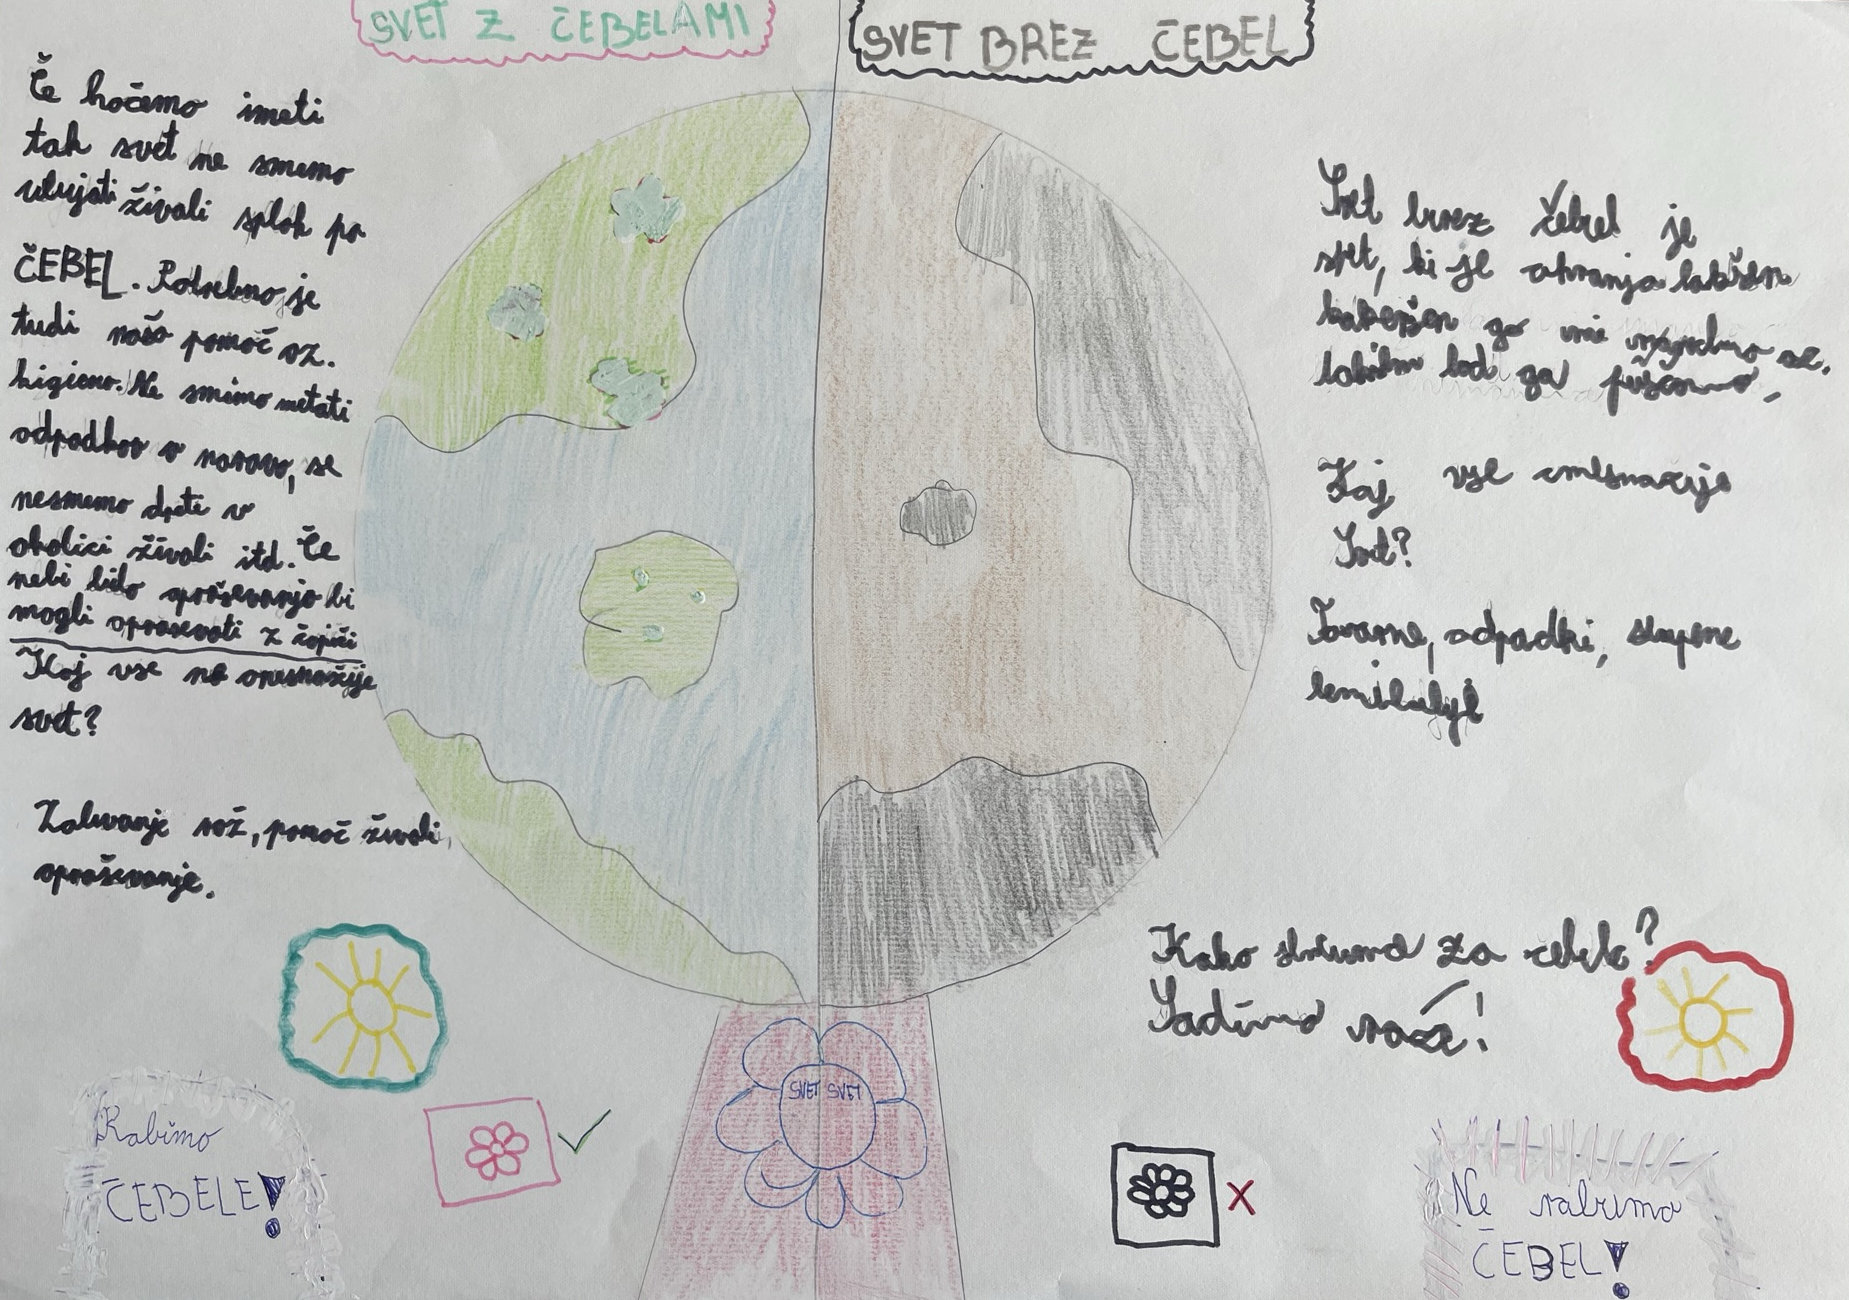 SVET Z ČEBELAMI
Če hočemo imeti
tak svet ne smemo
ubijati živali sploh pa
ČEBEL. Potrebno je
tudi naša pomoč oz.
higieno. Ne smemo metati
odpadkov v naravo, se
nesmemo dreti v
okolici živali itd. Če
nebi bilo opraševanja bi
mogli opraševati z čopiči
Kaj vse ne onesnažije
svet?
Zalivanje rož, pomoč živali,
opraševanje.
Rabimo
ČEBELE!
SVET SVET
SVET BREZ ČEBEL
Svet brez čebel je
svet, ki je
ga oz.
ga
Kaj vse
Svet?
Tovarne, odpadki, strupene
Kako skrbimo za čebele?
Sadimo rože!
Ne rabimo
ČEBEL!